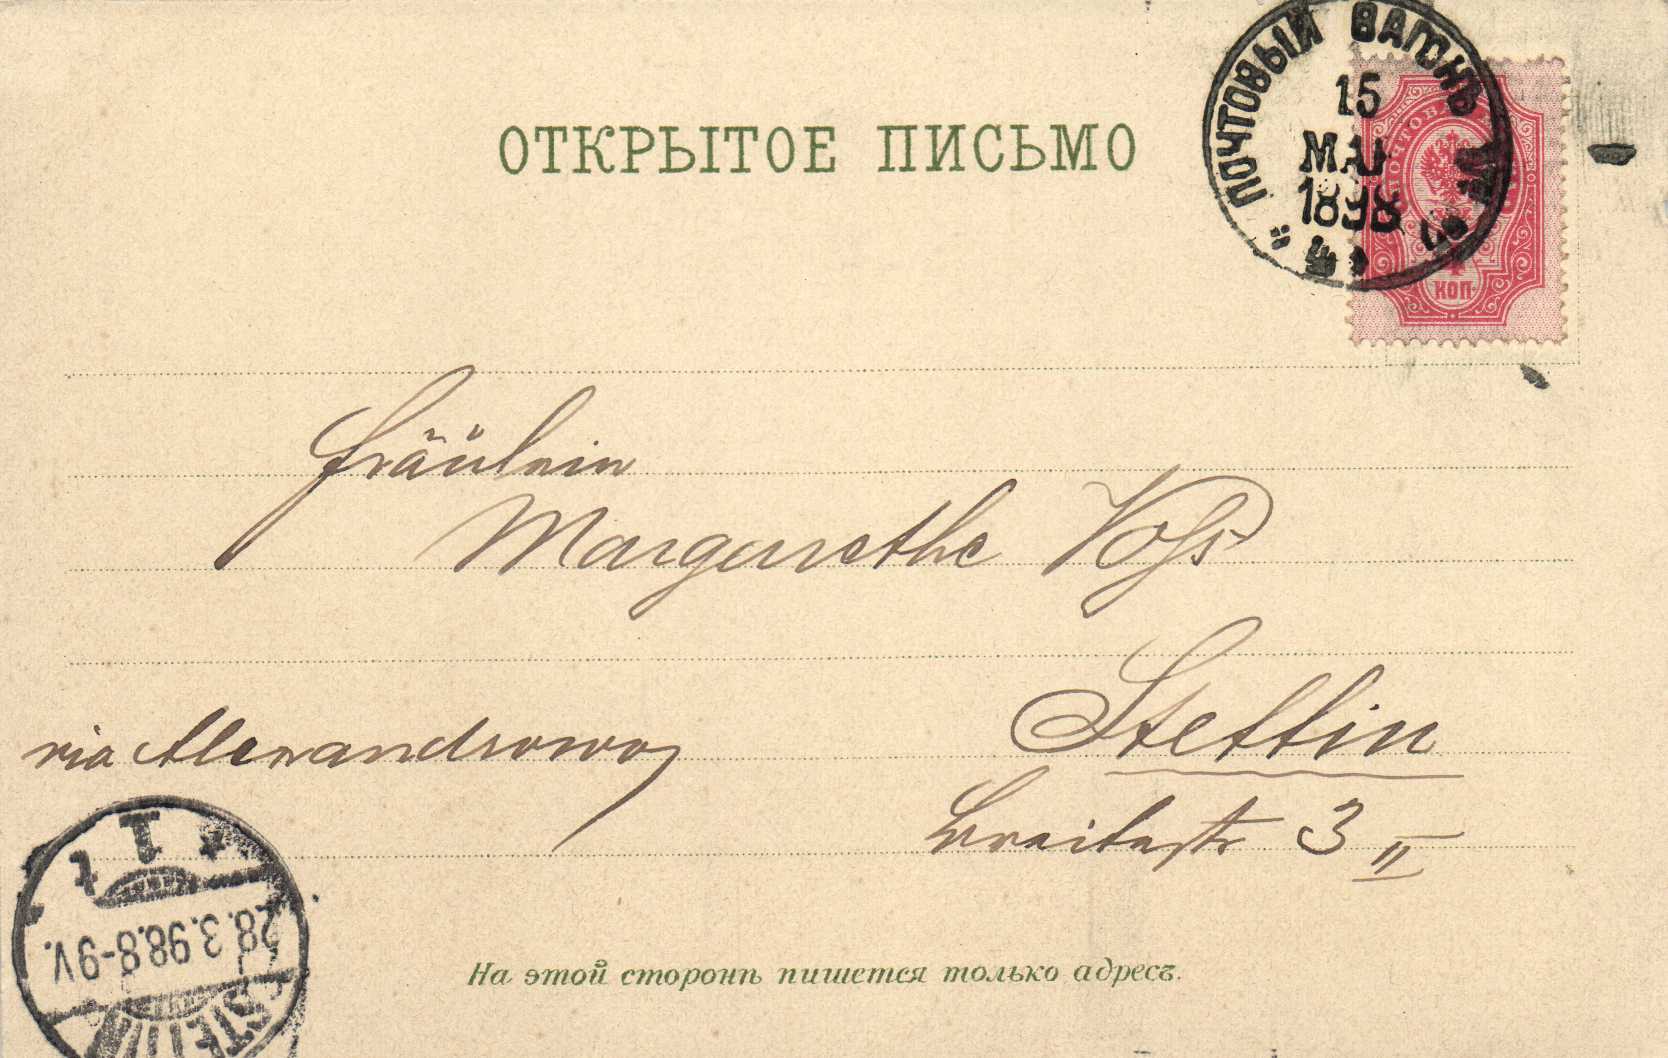 ПОЧТОВЫЙ ВАГОНЪ
15
МАР
1898
ОТКРЫТОЕ ПИСЬМО
ПОЧТОВ
4
КОП.
Fräulein
Margarethe Voss
Stettin
via Alexandrowo
Breitestr 3 II
STETTIN
28.3.98.8-9V.
1
t
На этой сторонѣ пишется только адресъ.